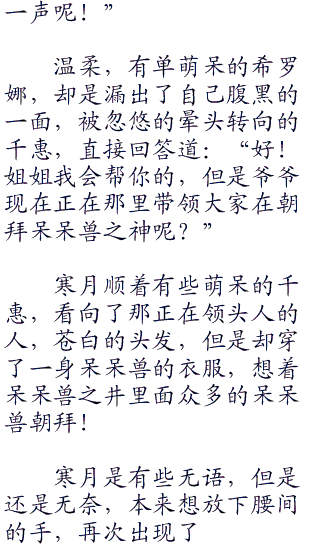 一声呢！”
温柔，有单萌呆的希罗
娜，却是漏出了自己腹黑的
一面，被忽悠的晕头转向的
千惠，直接回答道：“好！
姐姐我会帮你的，但是爷爷
现在正在那里带领大家在朝
拜呆呆兽之神呢？”
寒月顺着有些萌呆的千
惠，看向了那正在领头人的
人，苍白的头发，但是却穿
了一身呆呆兽的衣服，想着
呆呆兽之井里面众多的呆呆
兽朝拜！
寒月是有些无语，但是
还是无奈，本来想放下腰间
的手，再次出现了